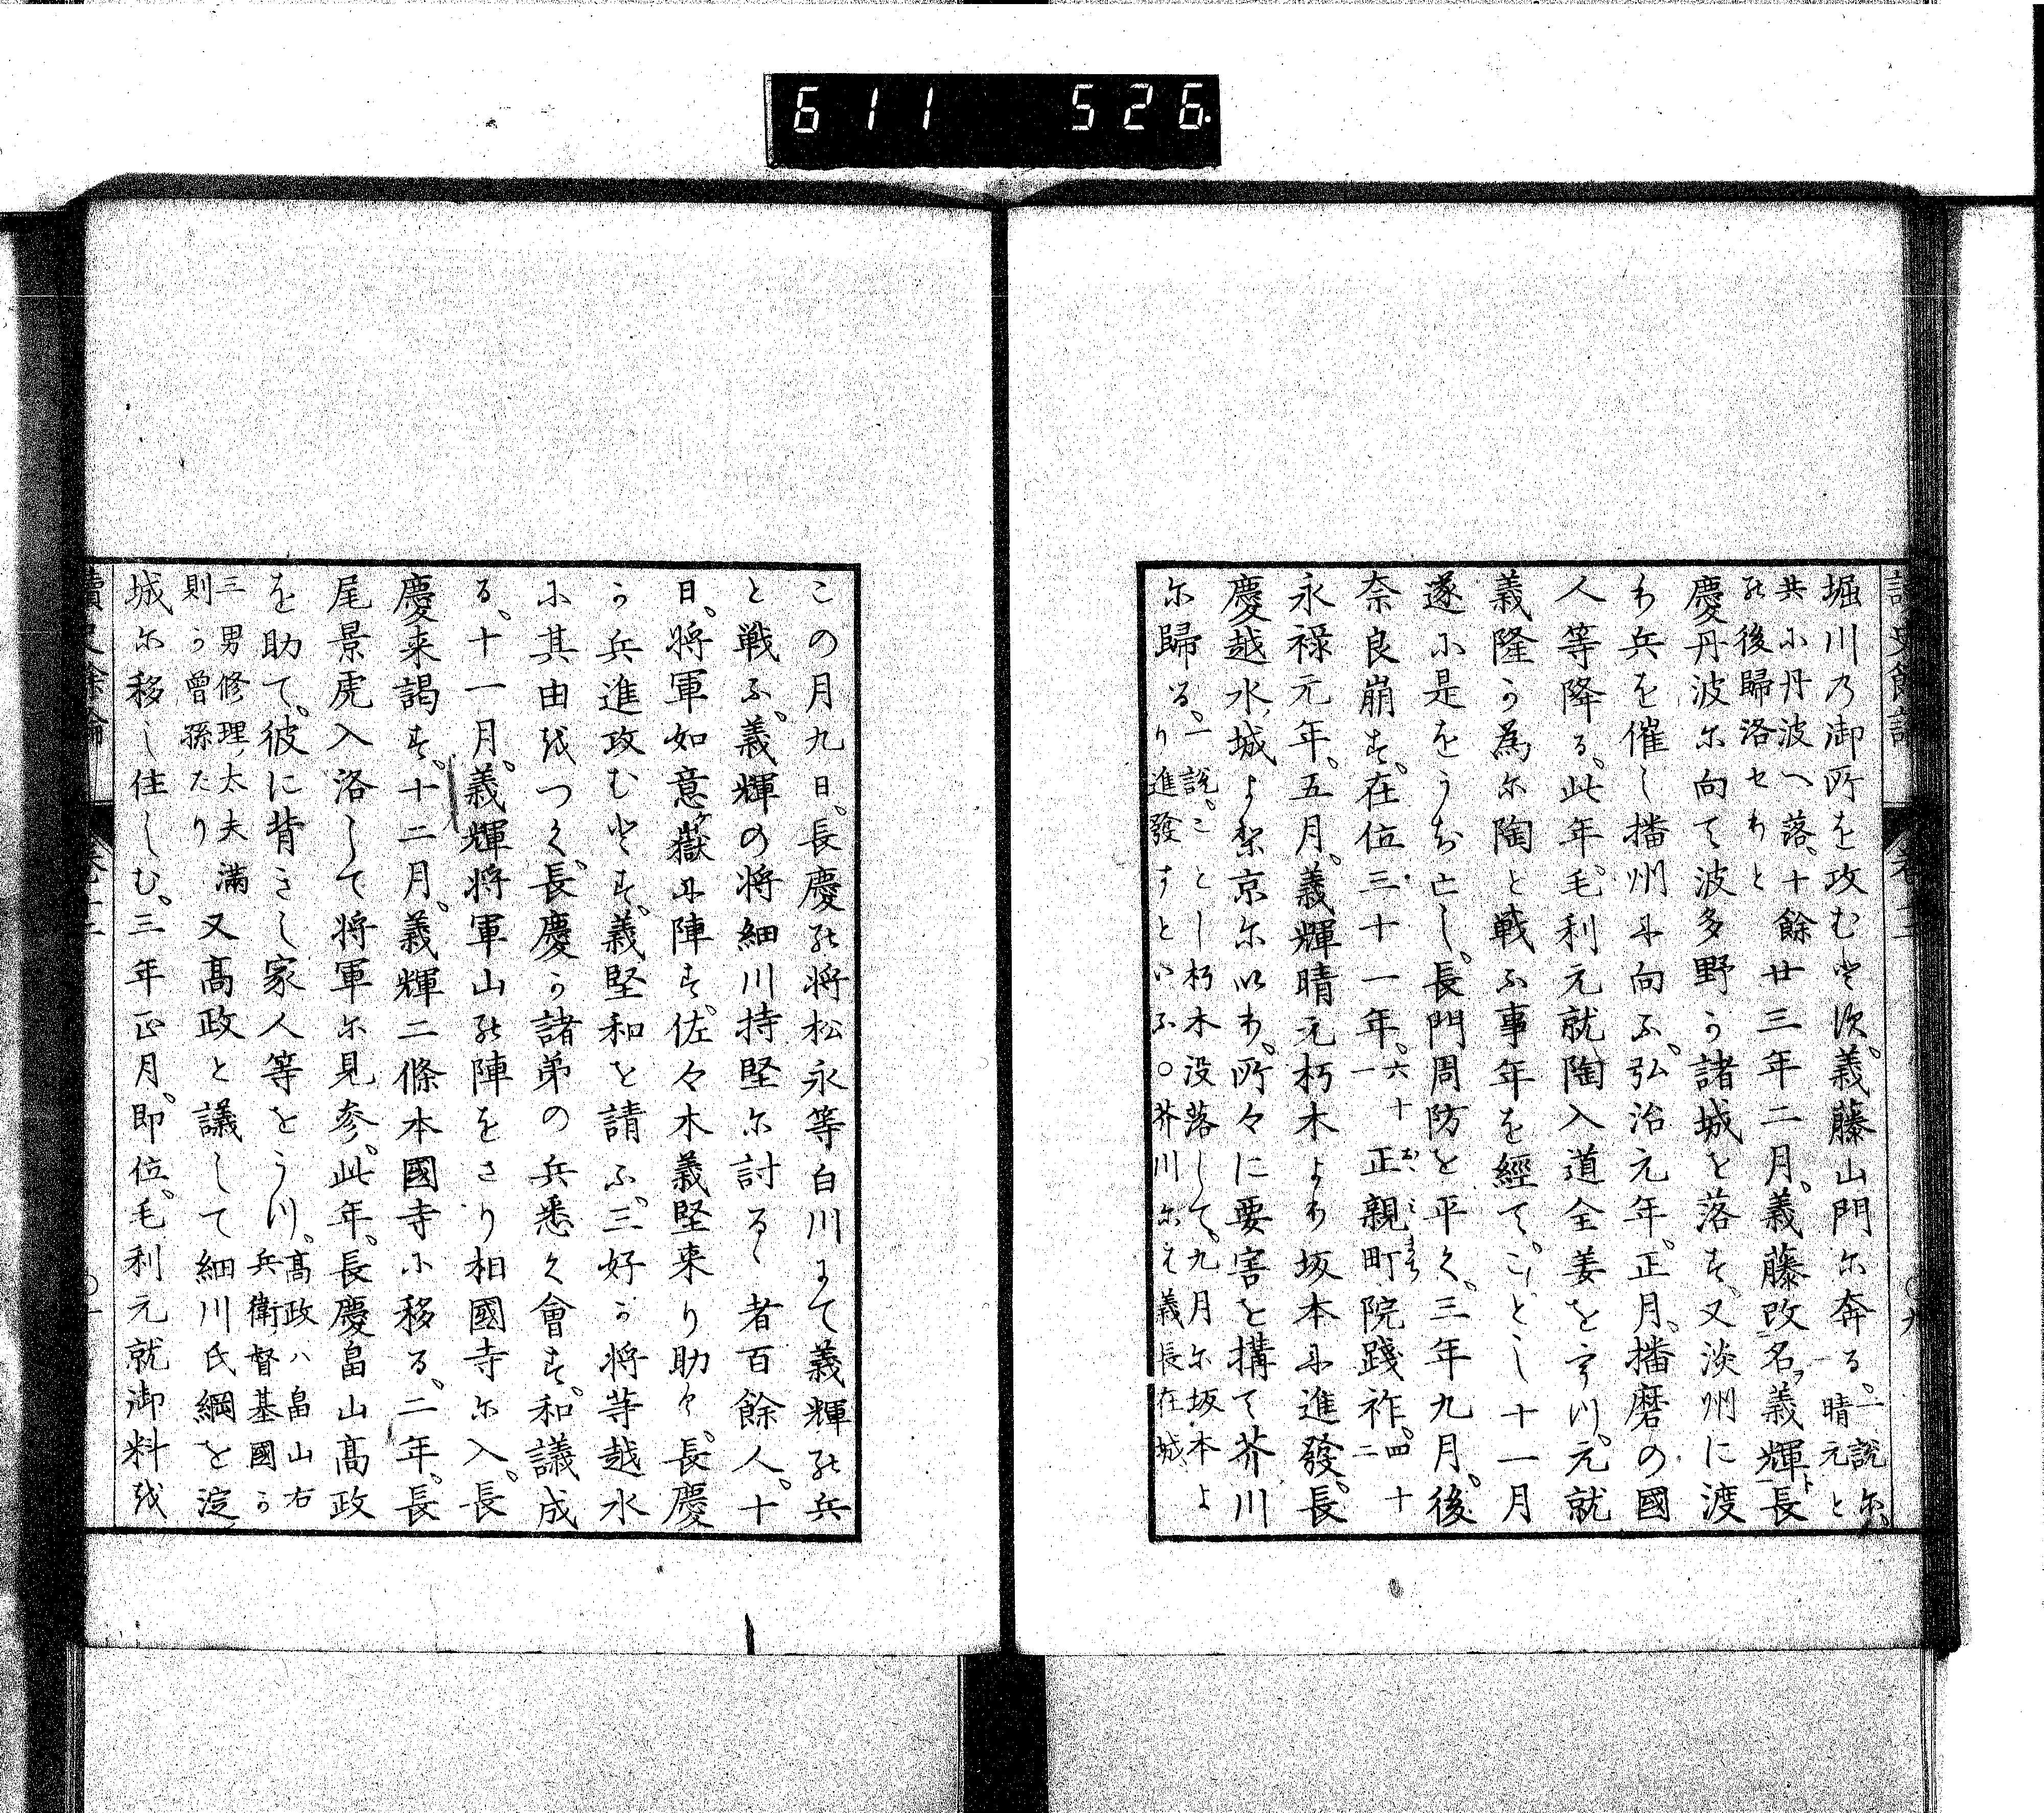 611 526.
堀川乃御所を攻むとす。義藤山門尓奔る。一説尓晴元と
共小丹波へ落、十餘廿三年二月。義藤改名義輝ト長
能後歸洛セりと
慶丹波尓向て波多野う諸城を落す、又淡州に渡
り兵を催し播州尓向ふ。弘治元年。正月。播磨の國
人等降る。此年。毛利元就陶入道全姜をうつ。元就
義隆う為尓陶と戦ふ事年を經て。ことし十一月
遂小是をうち亡し。長門周防を平く。三年九月。後
奈良崩す。在位三十一年。六十一正親町院踐祚。四十二
永禄元年。五月。義輝晴元朽木より坂本尓進發。長
慶越水城より京尓以り。所々に要害を構て芥川
尓歸る。一説。ことし朽木没落して。九月尓坂本よ
り進發すといふ○芥川尓も義長在城
この月九日。長慶能将松永等白川にて義輝能兵
と戦ふ。義輝の将細川持堅尓討るゝ者百餘人。十
日。将軍如意嶽尓陣す。佐々木義堅来り助く。長慶
う兵進攻むとす。義堅和を請ふ。三好う将等越水
小其由越つく。長慶う諸弟の兵悉く會す。和議成
る。十一月。義輝将軍山能陣をさり相國寺尓入。長
慶来謁す。十二月。義輝二條本國寺小移る。二年。長
尾景虎入洛して将軍尓見参。此年。長慶畠山髙政
を助て。彼に背きし家人等をうつ。髙政ハ畠山右
兵衛督基國う
三男修理太夫滿
則う曽孫たり又髙政と議して細川氏綱を淀
城尓移し住しむ。三年正月。即位。毛利元就御料越
讀史餘論